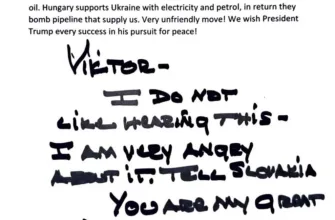 oil. Hungary supports Ukraine with electricity and petrol, in return they
bomb pipeline that supply us. Very unfriendly move! We wish President
Trump every success in his pursuit for peace!
VIKTOR-
I DO NOT
LIKE HEARING THIS -
I AM VERY ANGRY
ABOUT IT. TELL SLOVAKIA
YOU ARE MY GREAT